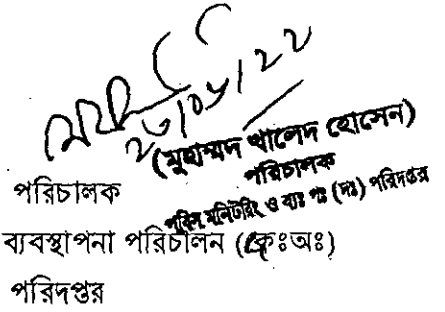 ২৬/০৬/২২
(মুহাম্মদ খালেদ হোসেন)
পরিচালক
পবিস মনিটরিং ও ব্যঃ পঃ (দঃ) পরিদপ্তর
পরিচালক
ব্যবস্থাপনা পরিচালন (কেঃঅঃ)
পরিদপ্তর